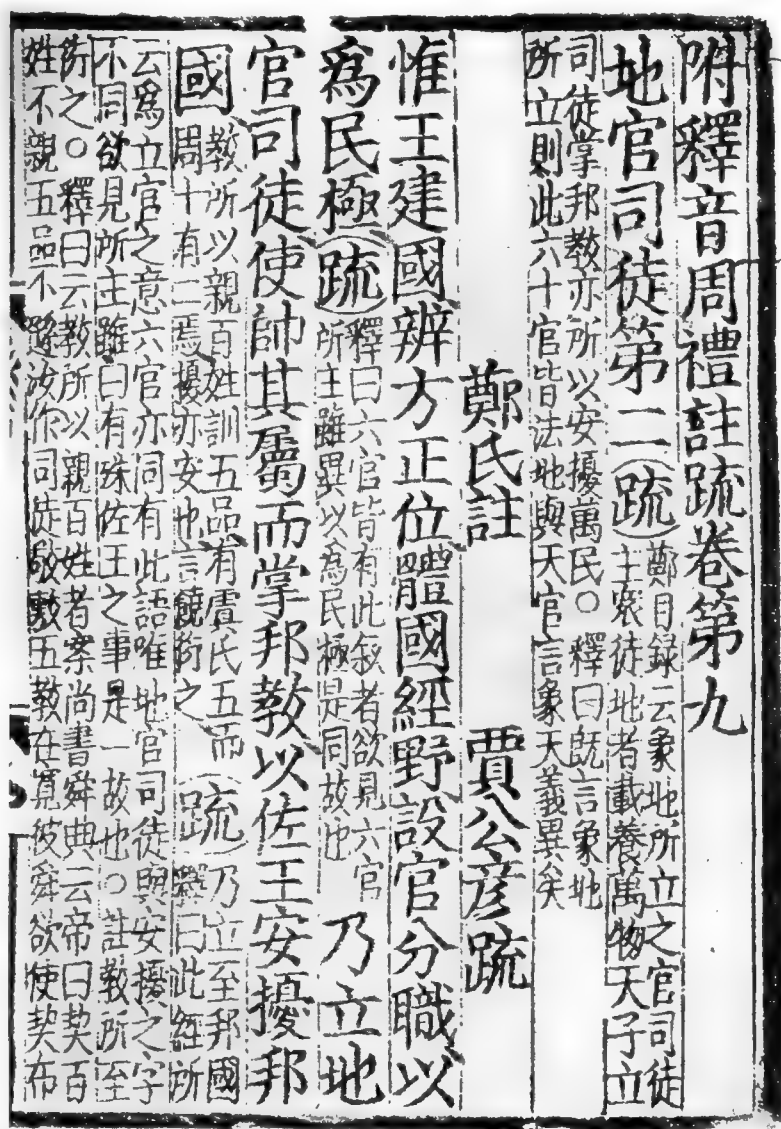 附釋音周禮註疏卷第九
地官司徒第二 疏 鄭目録云象地所立之官司徒
主衆徒地者載養萬物天子立
司徒掌邦教亦所以安擾萬民○釋曰既言象地
所立則此六十官皆法地與天官言象天義異矣
鄭氏註 賈公彥疏
惟王建國辨方正位體國經野設官分職以
爲民極 疏 釋曰六官皆有此叙者欲見六官
所主雖異以爲民極是同故也 乃立地
官司徒使帥其屬而掌邦教以佐王安擾邦
國 教所以親百姓訓五品有虞氏五而
周十有二焉擾亦安也言饒衍之 疏 乃立至邦國
釋曰此經所
云爲立官之意六官亦同有此語唯地官司徒與安擾之字
不同欲見所主雖曰有殊佐王之事是一故也○註教所至
衍之○釋曰云教所以親百姓者案尚書舜典云帝曰契百
姓不親五品不遜汝作司徒敬敷五教在寬彼舜欲使契布